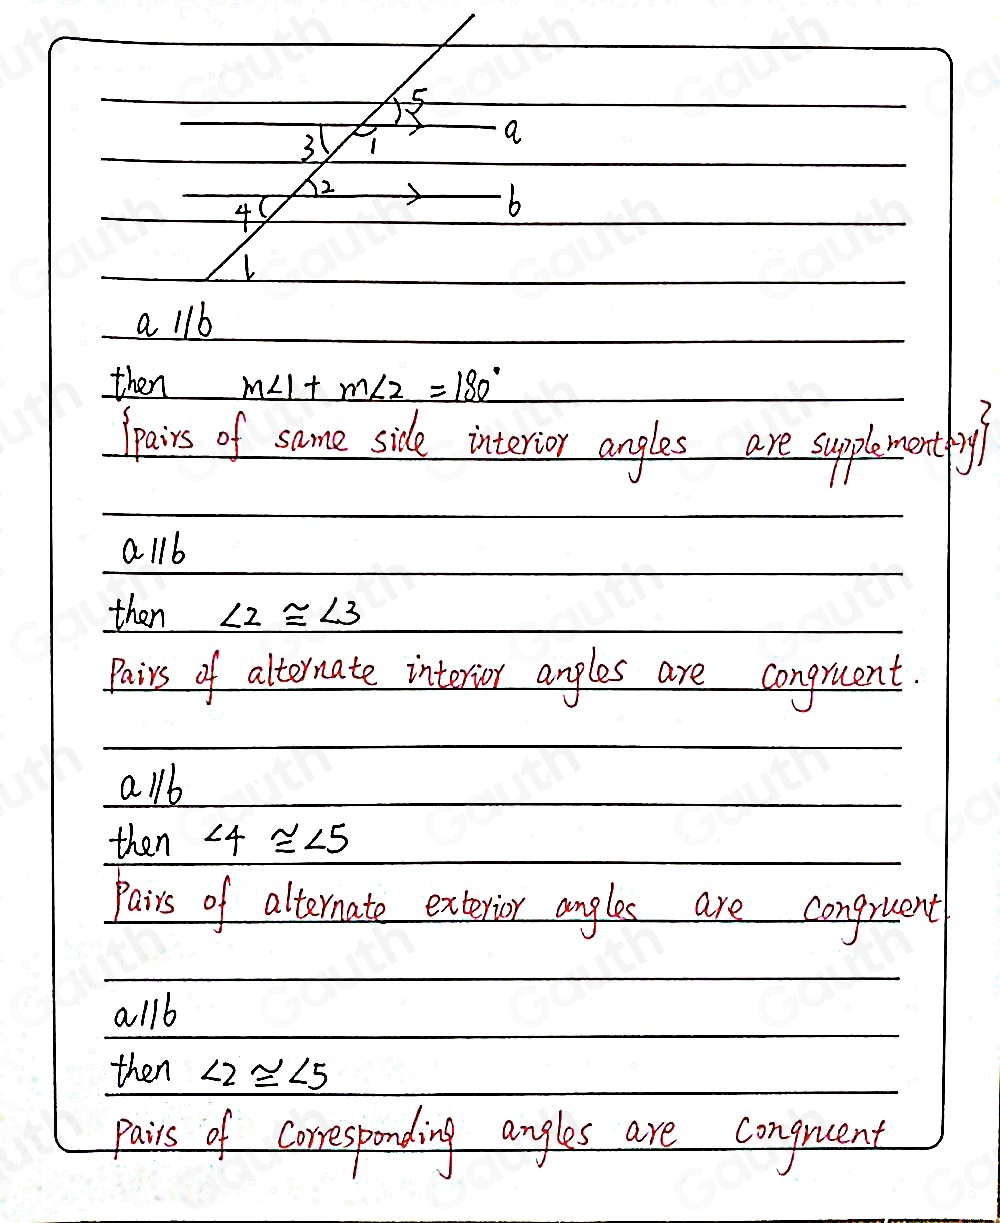 5
3 1 a
2
4 b
l
a // b
then m∠1 + m∠2 = 180°
{pairs of same side interior angles are supplementary}
a // b
then ∠2 ≅ ∠3
Pairs of alternate interior angles are congruent.
a // b
then ∠4 ≅ ∠5
Pairs of alternate exterior angles are congruent.
a // b
then ∠2 ≅ ∠5
Pairs of corresponding angles are congruent
Gauth